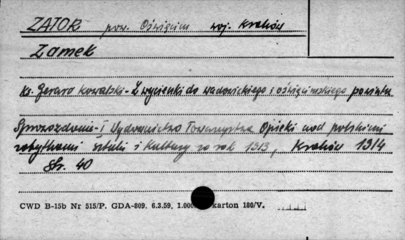 ZATOR pow. Oświęcim woj. Kraków
Zamek
Ks. Gerard Kowalski - Z wycieczki do wadowickiego i oświęcimskiego powiatu
Sprawozdanie i Wydawnictwo Towarzystwa Opieki nad polskimi
zabytkami sztuki i kultury za rok 1913, Kraków 1914
Str. 40
CWD B-15b Nr 515/P. GDA-809. 6.3.59, 1.000 karton 180/V.